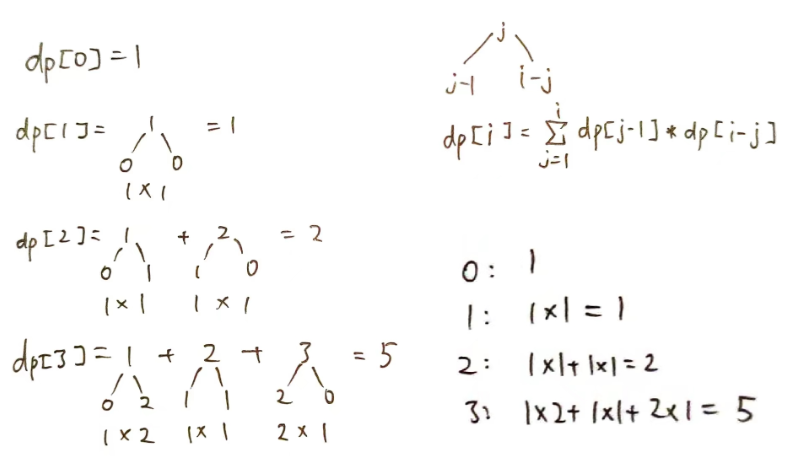 dp[0]=1
dp[1]= 1 =1
0 0
1×1
dp[2]= 1 + 2 =2
0 1 1 0
1×1 1×1
dp[3]= 1 + 2 + 3 =5
0 2 1 1 2 0
1×2 1×1 2×1
j
j-1 i-j
i
dp[i]= Σ dp[j-1]*dp[i-j]
j=1
0: 1
1: 1×1=1
2: 1×1+1×1=2
3: 1×2+1×1+2×1=5